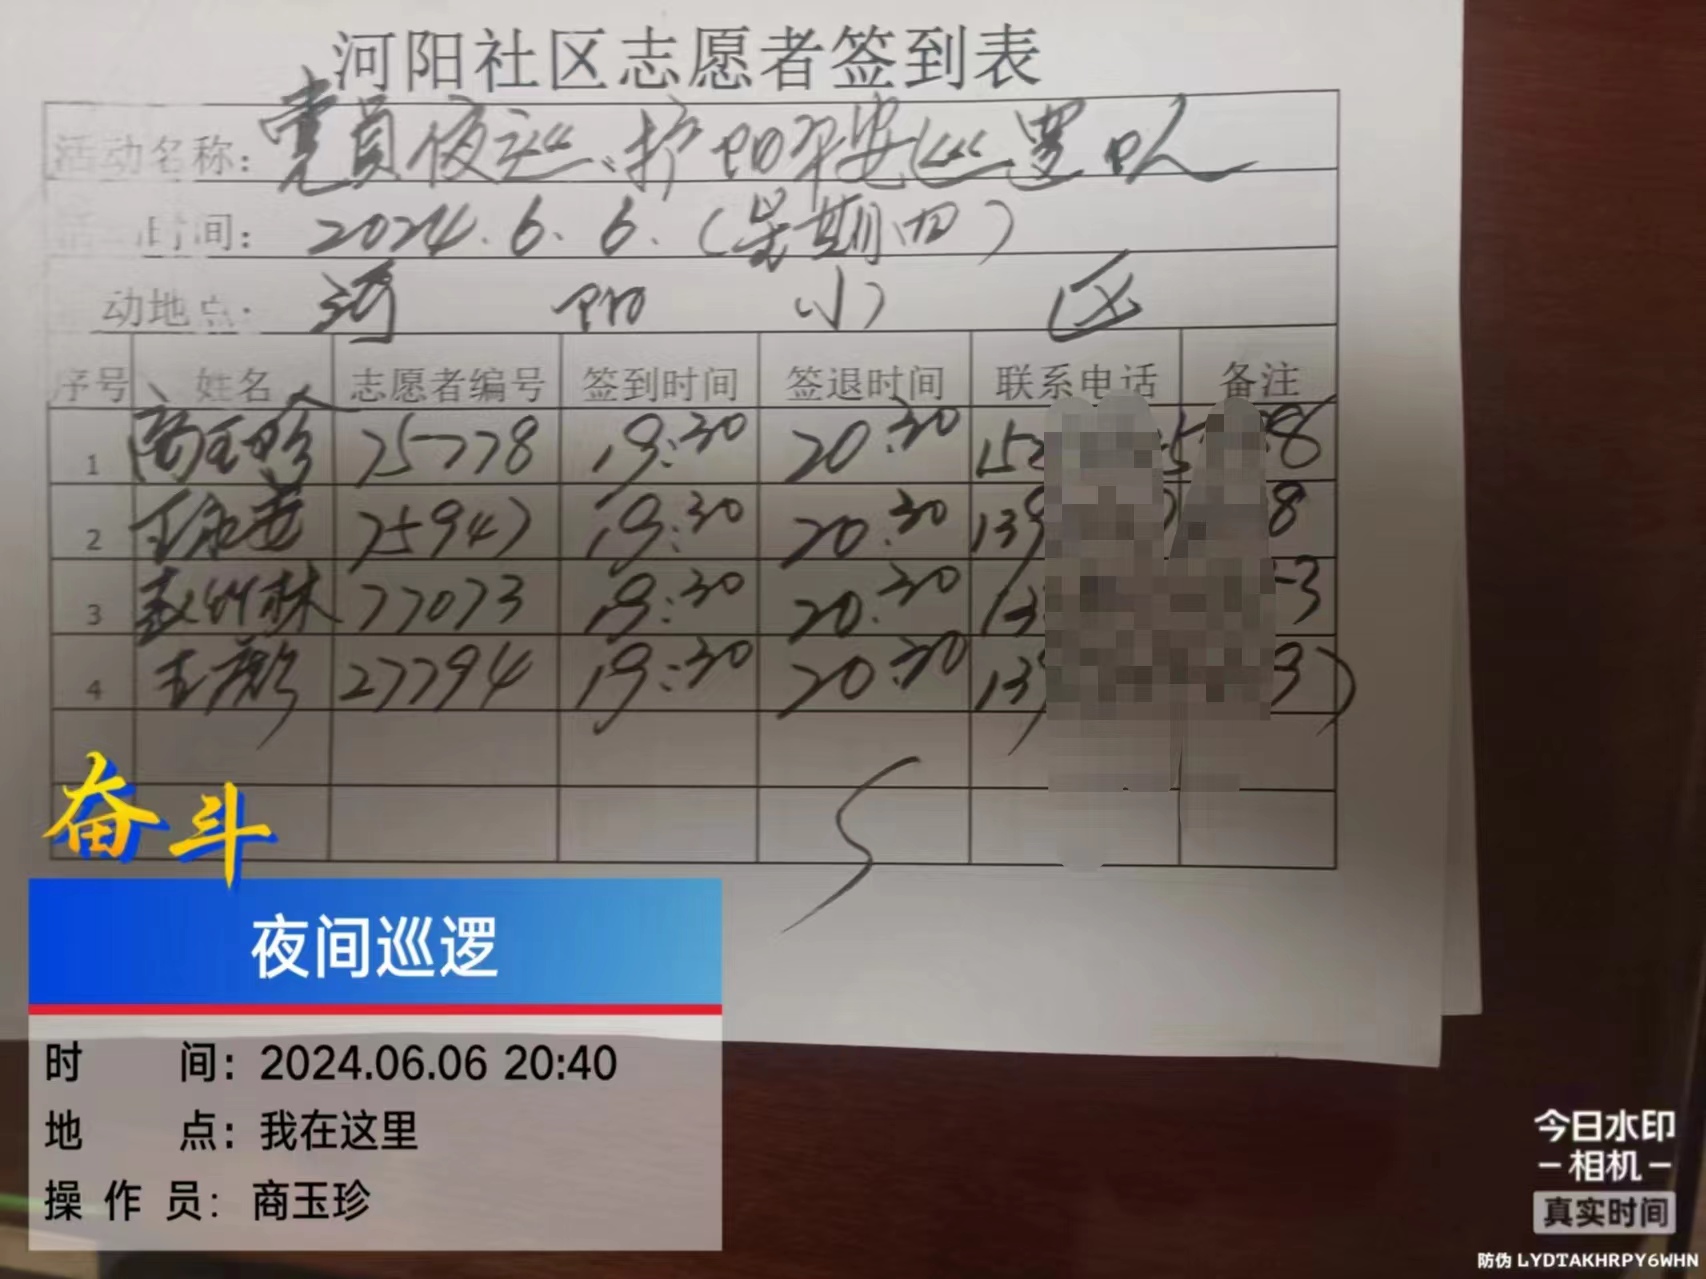 河阳社区志愿者签到表
活动名称：党员夜巡、护阳平安巡逻队
时间：2024.6.6.（星期四）
动地点：河阳小区
序号 姓名 志愿者编号 签到时间 签退时间 联系电话 备注
1 商玉珍 75778 19:30 20:30 152 5 8
2 王永芳 75947 19:30 20:30 139 8
3 赵竹林 77073 19:30 20:30 13 3
4 王彪 27794 19:30 20:30 13
奋斗
夜间巡逻
时间：2024.06.06 20:40
地点：我在这里
操作员：商玉珍
今日水印
-相机-
真实时间
防伪 LYDTAKHRPY6WHN